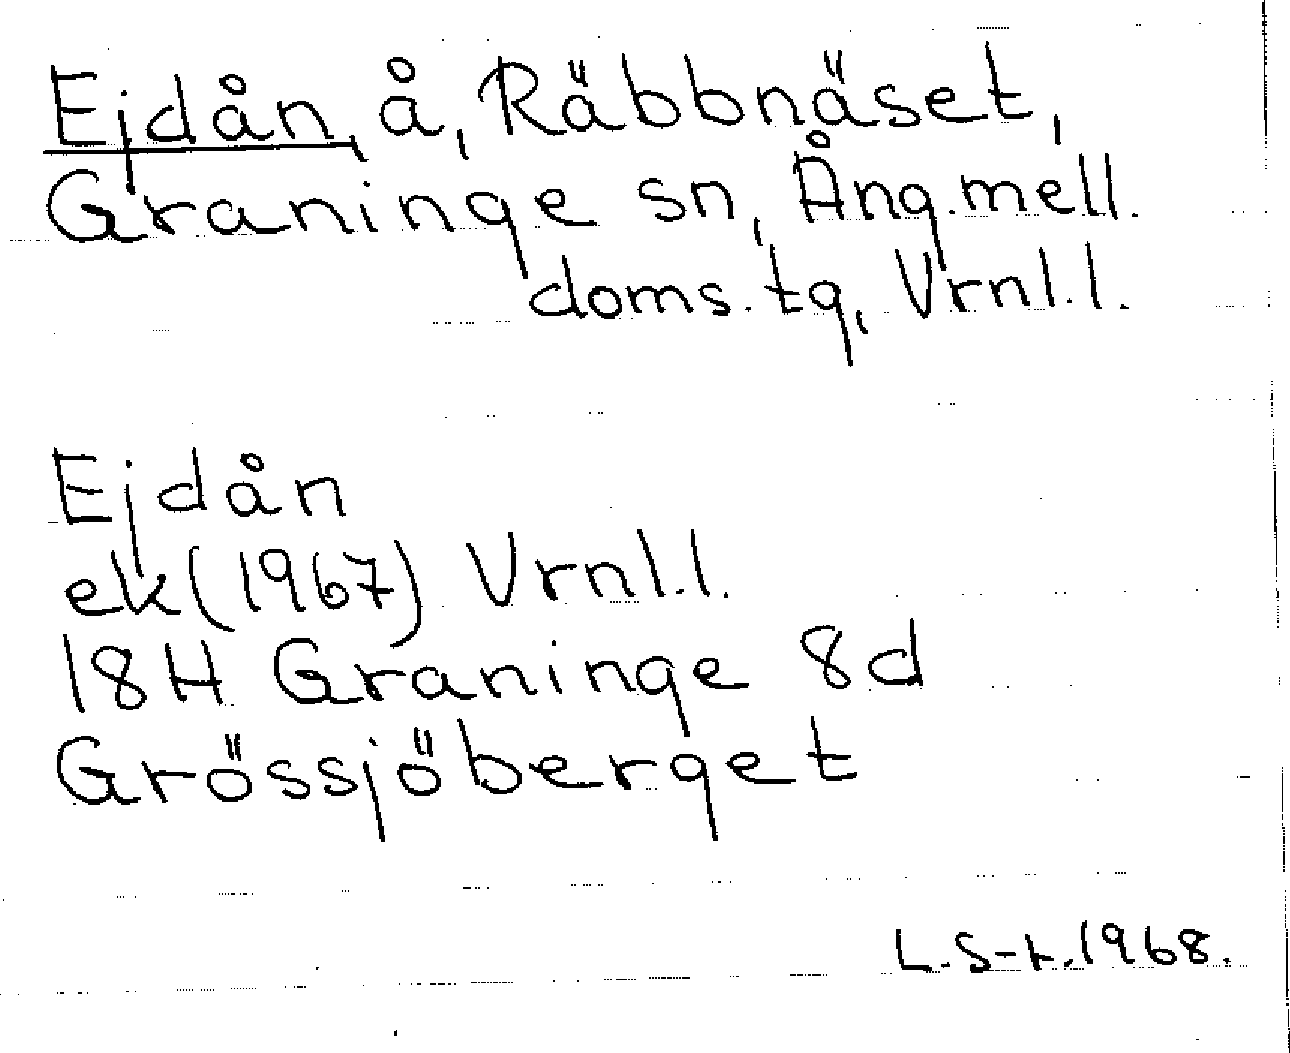 Ejdån, å, Räbbnäset,
Graninge sn, Ång.mell.
doms.tg, Vrnl.l.
Ejdån
ek(1967) Vrnl.l.
18H Graninge 8d
Grössjöberget
L.S-t.1968.